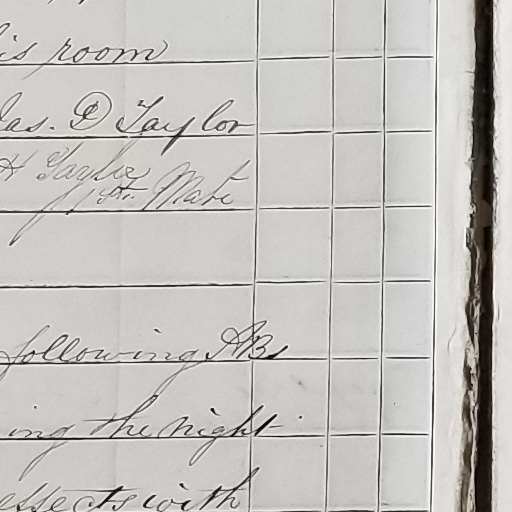 is room
as. D Taylor
H Taylor
1st. Mate
following ABs
ing the night
effects with